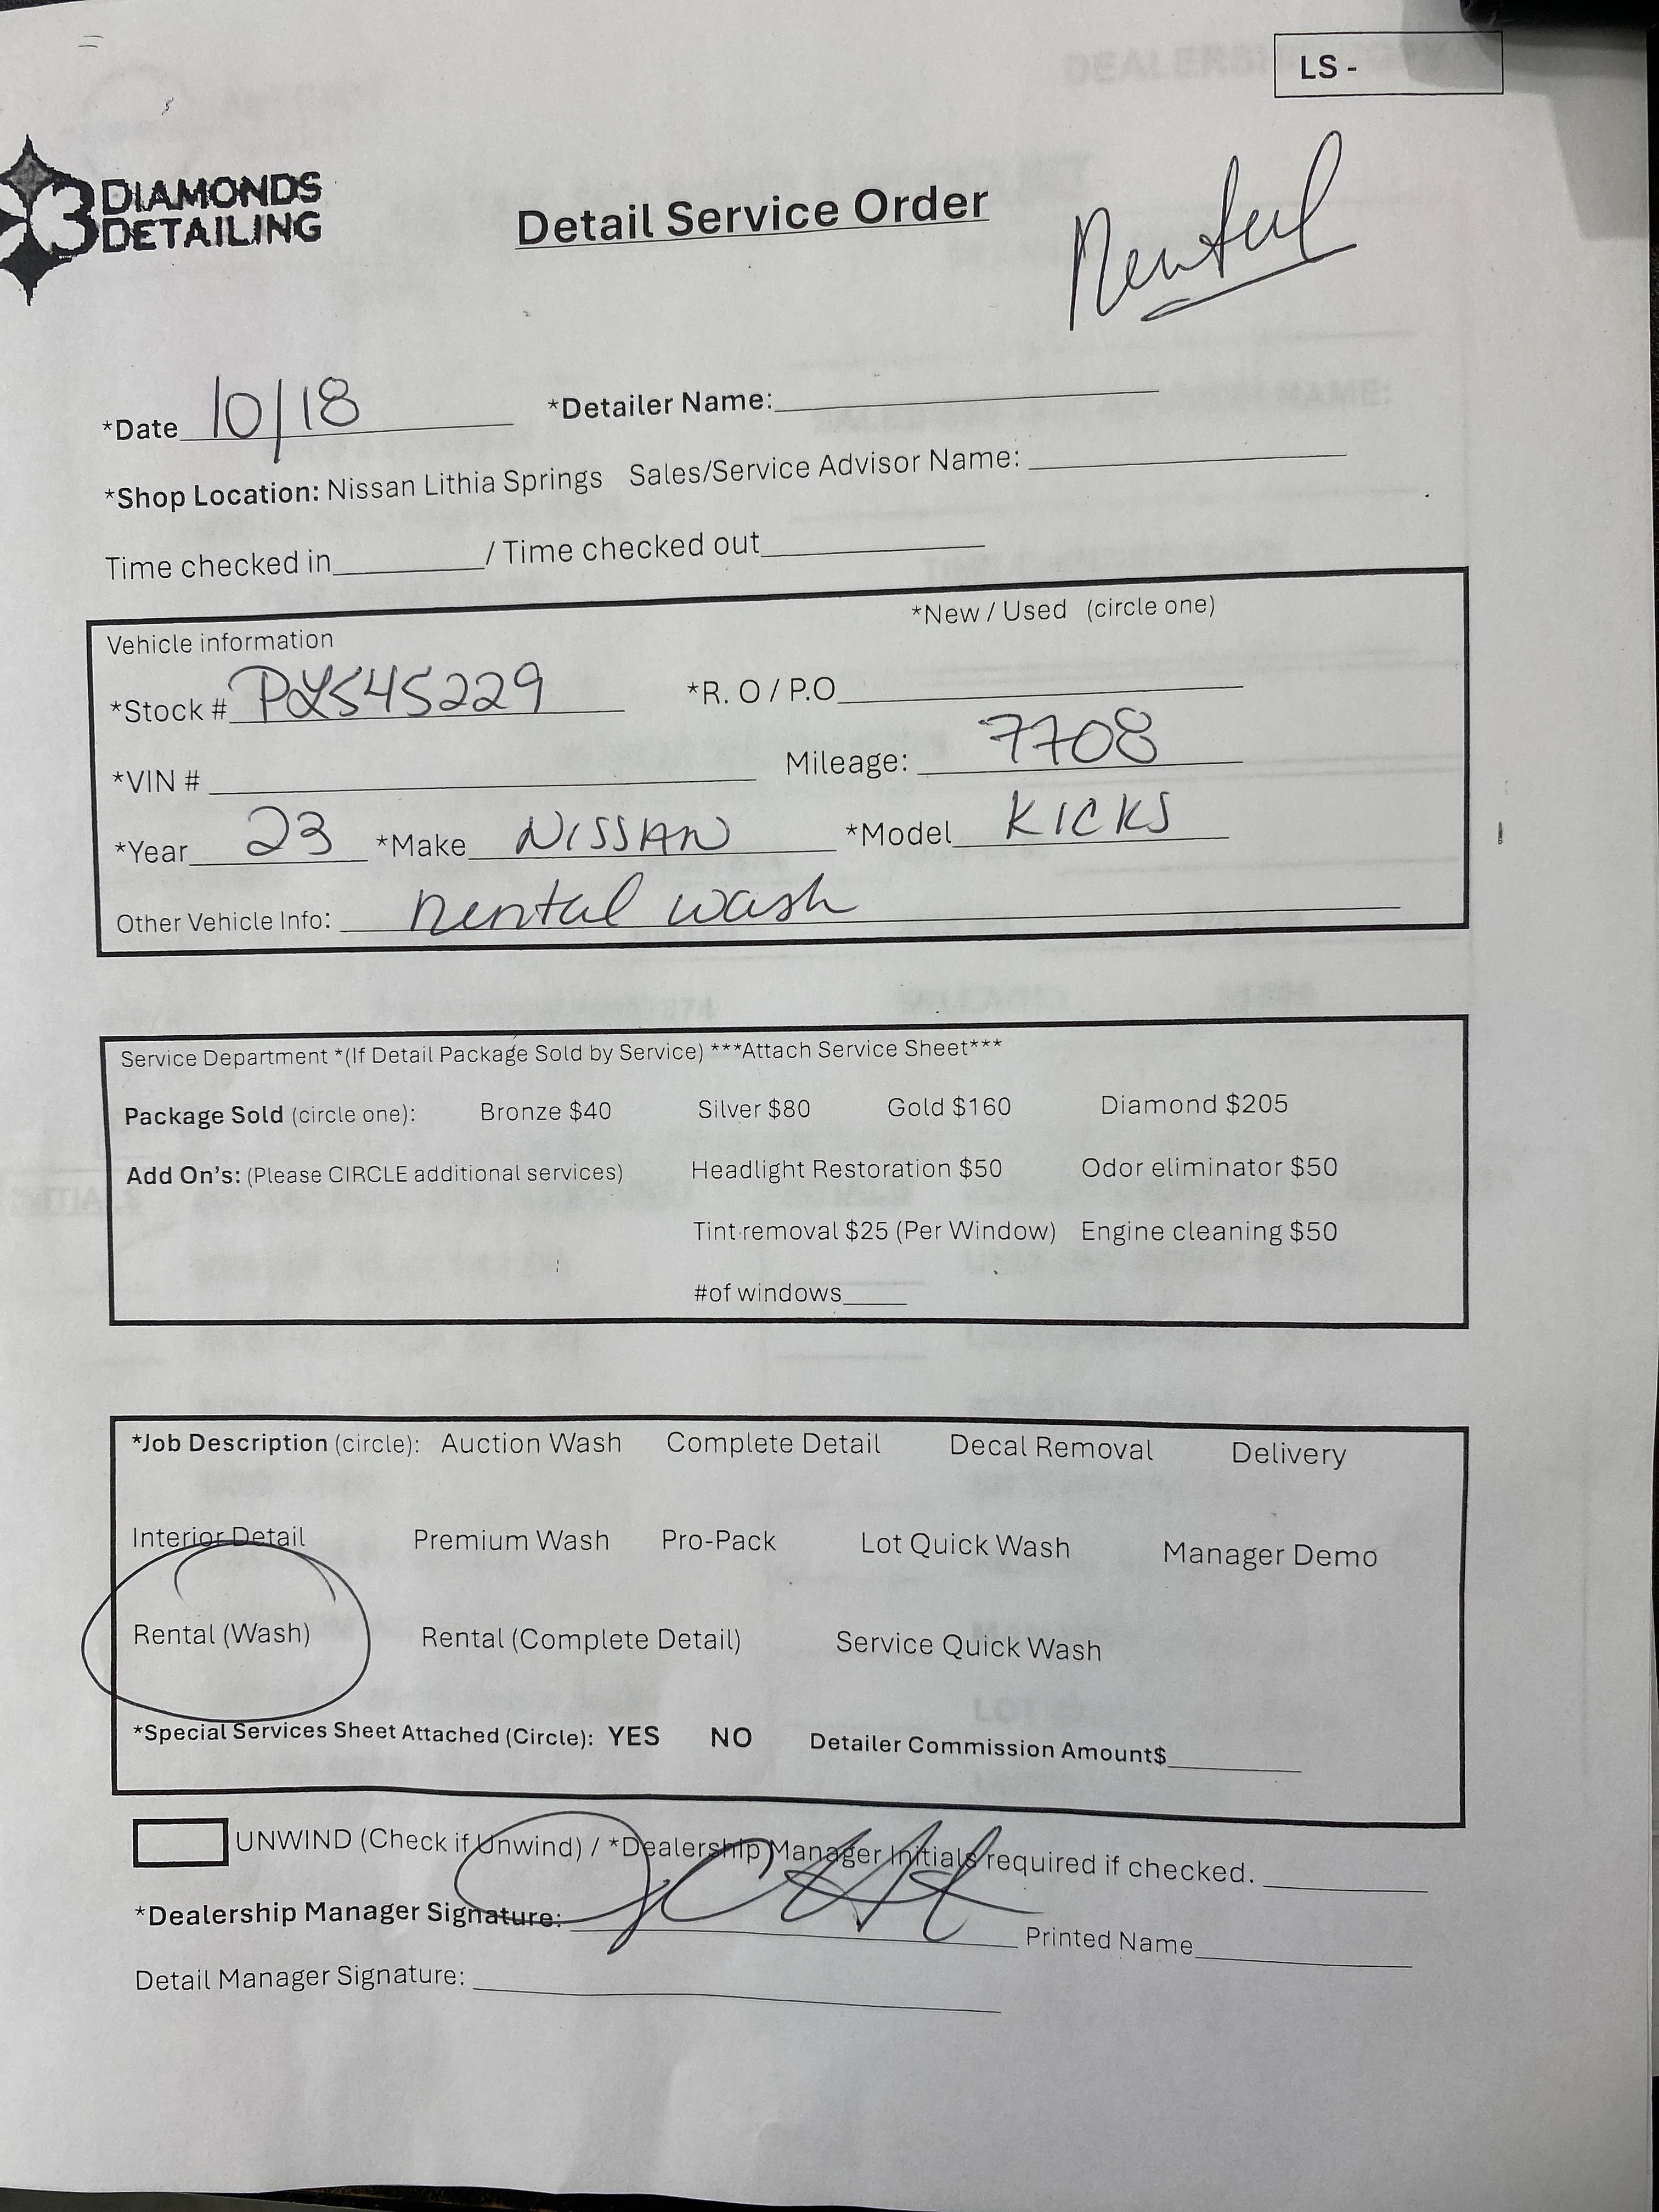 LS -
3 DIAMONDS
DETAILING
Detail Service Order
Rental
*Date 10/18 *Detailer Name:
*Shop Location: Nissan Lithia Springs Sales/Service Advisor Name:
Time checked in / Time checked out
*New / Used (circle one)
Vehicle information
*Stock # PL545229 *R. O / P.O
*VIN # Mileage: 7708
*Year 23 *Make NISSAN *Model KICKS
Other Vehicle Info: Rental wash
Service Department *(If Detail Package Sold by Service) ***Attach Service Sheet***
Package Sold (circle one): Bronze $40 Silver $80 Gold $160 Diamond $205
Add On's: (Please CIRCLE additional services) Headlight Restoration $50 Odor eliminator $50
Tint removal $25 (Per Window) Engine cleaning $50
#of windows
*Job Description (circle): Auction Wash Complete Detail Decal Removal Delivery
Interior Detail Premium Wash Pro-Pack Lot Quick Wash Manager Demo
Rental (Wash) Rental (Complete Detail) Service Quick Wash
*Special Services Sheet Attached (Circle): YES NO Detailer Commission Amount$
UNWIND (Check if Unwind) / *Dealership Manager Initials required if checked.
*Dealership Manager Signature: Printed Name
Detail Manager Signature: